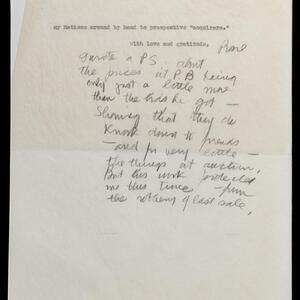 my Matisse around by hand to prospective "acquirers."
With love and gratitude,
I wrote a PS. about
the prices at P.B being
only just a little more
than the bids he got —
Showing that they do
Knock down to friends
— and for very little —
the things at auction,
But this work protected
me this time — from
the of last sale,